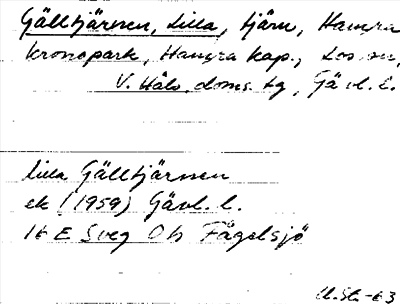 Gälltjärnen, Lilla, tjärn, Hamra
kronopark, Hamra kap., Los sn,
V. Häls. doms. tg, Gävl. l.
lilla Gälltjärnen
ek (1959) Gävl. l.
16 E Sveg Fågelsjö
-63